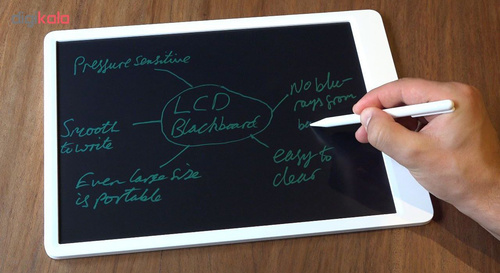 digikala
Pressure sensitive
LCD
Blackboard
No blue-
rays from
Smooth
to write
easy to
clear
Even large size
is portable